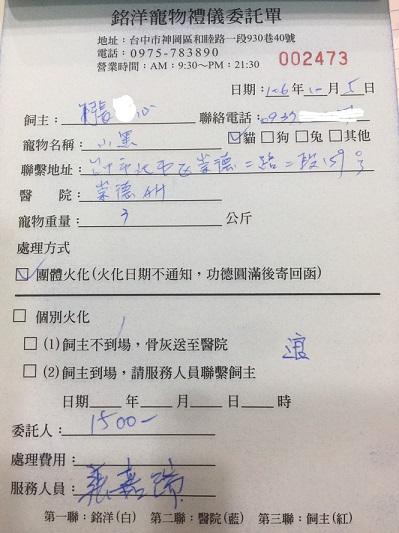 銘洋寵物禮儀委託單
地址：台中市神岡區和睦路一段930巷40號
電話：0975-783890
營業時間：AM：9:30~PM：21:30
002473
日期：106年10月5日
飼主： 聯絡電話：0937
寵物名稱：小黑 ☑貓□狗□兔□其他
聯繫地址：台中市北屯區崇德二路二段159号
醫　　院：崇德
寵物重量：3 公斤
處理方式
☑團體火化(火化日期不通知，功德圓滿後寄回函)
□個別火化
□(1)飼主不到場，骨灰送至醫院
渡
□(2)飼主到場，請服務人員聯繫飼主
日期 年 月 日 時
委託人：1500-
處理費用：
服務人員：
第一聯：銘洋(白) 第二聯：醫院(藍) 第三聯：飼主(紅)